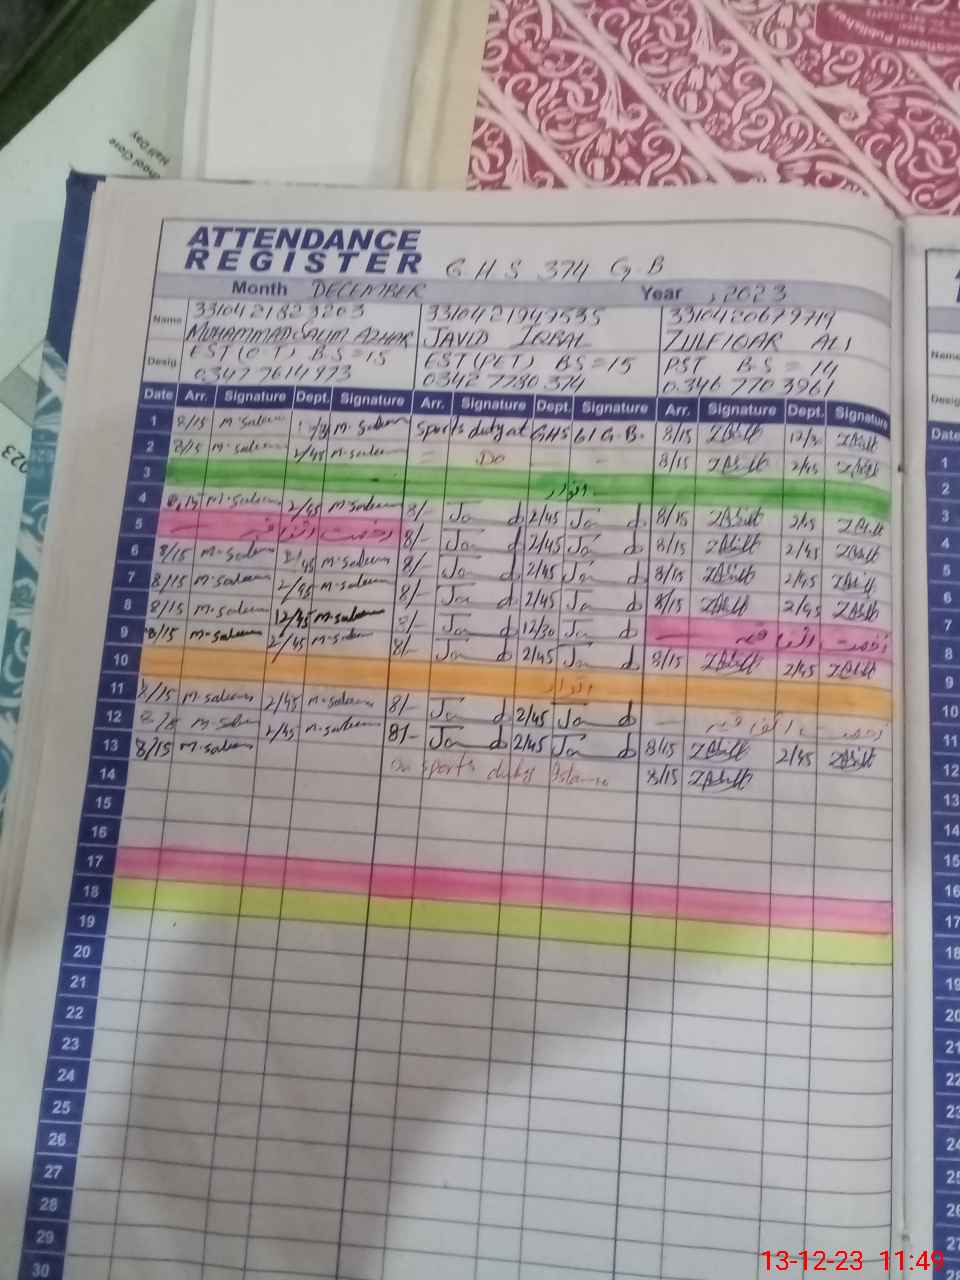 School Close
Half Day
2023
ATTENDANCE
REGISTER G.H.S 374 G.B
Month DECEMBER Year 2023
Name 3310421823203 3310421947535 3310420679719
MUHAMMAD SALIM AZHAR JAVID IQBAL ZULFIQAR ALI
Desig. EST (O.T) B.S=15 EST (PET) BS=15 PST B.S=14
0347 7614973 0342 7780 374 0346 770 3961
Date Arr. Signature Dept. Signature Arr. Signature Dept. Signature Arr. Signature Dept. Signature
1 8/15 M-Saleem M-Saleem Sports duty at GHS 61 G.B. 8/15 12/30
2 8/15 M-Saleem 2/45 M-Saleem Do 8/15 2/45
3 اتوار
4 8/15 M-Saleem 2/45 M-Saleem 8/- 2/45 8/15 2/45
5 رخصت اتفاقیہ 8/- 2/45 8/15 2/45
6 8/15 M-Saleem 2/45 M-Saleem 8/- 2/45 8/15 2/45
7 8/15 M-Saleem 2/45 M-Saleem 8/- 2/45 8/15 2/45
8 8/15 M-Saleem 12/45 M-Saleem 8/- 12/30 رخصت اتفاقیہ
9 8/15 M-Saleem 2/45 M-Saleem 8/- 2/45 8/15 2/45
10 اتوار
11 8/15 M-Saleem 2/45 M-Saleem 8/- 2/45 رخصت اتفاقیہ
12 M-Saleem 2/45 M-Saleem 8/- 2/45 8/15 2/45
13 8/15 M-Saleem on sports duty 8/15
14
15
16
17
18
19
20
21
22
23
24
25
26
27
28
29
30
Name
Desig
Date
1
2
3
4
5
6
7
8
9
10
11
12
13
14
15
16
17
18
19
20
21
22
23
24
25
26
27
28
13-12-23 11:49